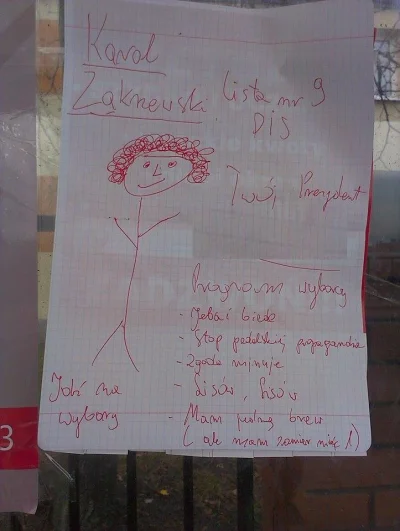 Karol
Zakrzewski
lista nr 9
DIS
Twój Prezydent
Program wyborczy
- Jebać biedę
- Stop pedalskiej propagandzie
- Zgoda minuje
- Lisów, Lisów
- Mam jedną brew
(ale mam zamiar mieć 1)
Idź na
wybory
3